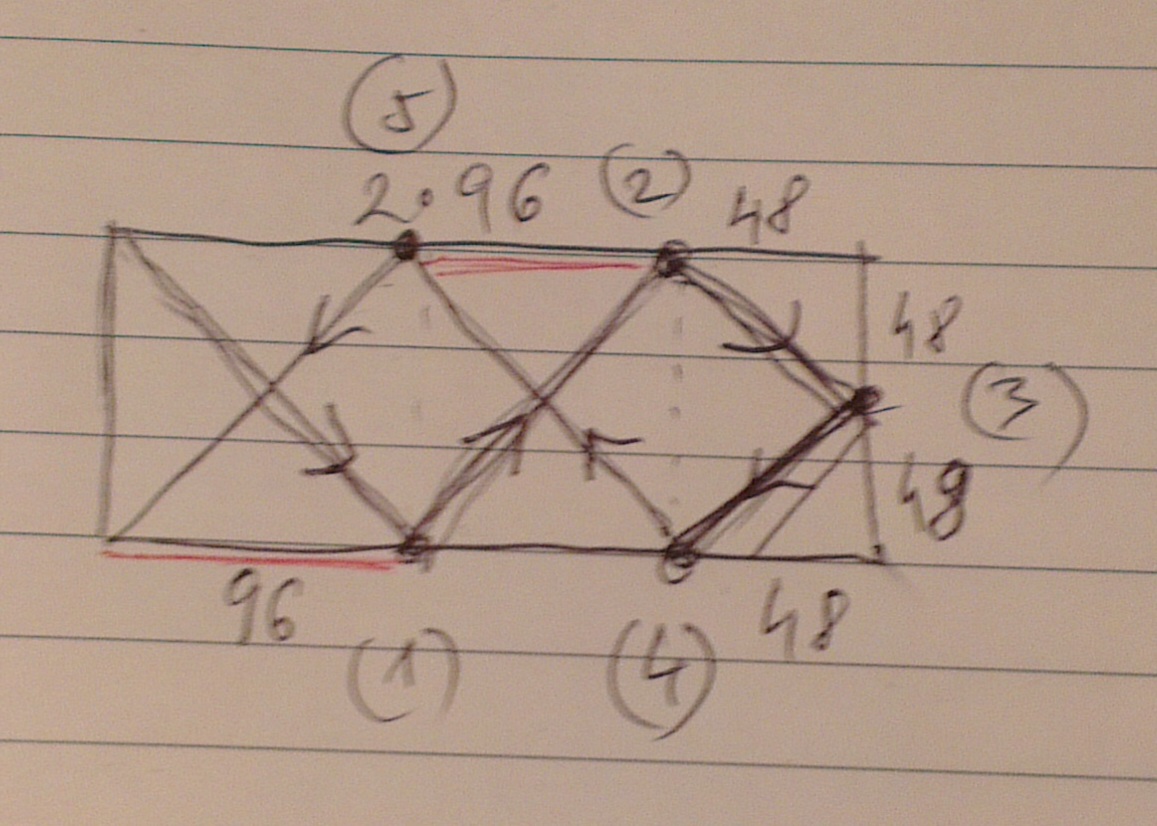 (5)
2·96 (2) 48
48
(3)
48
96 48
(1) (4)